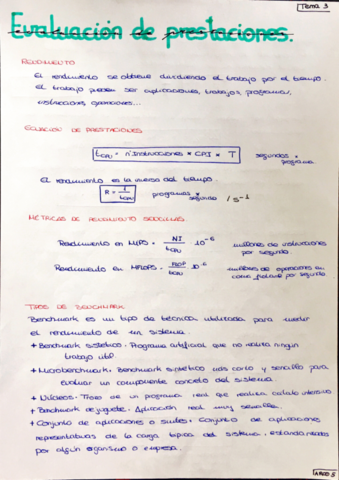 Tema 3
Evaluación de prestaciones.
RENDIMIENTO
El rendimiento se obtiene dividiendo el trabajo por el tiempo.
El trabajo pueden ser aplicaciones, trabajos, programas,
instrucciones, operaciones...
ECUACIÓN DE PRESTACIONES
tCPU = nºInstrucciones * CPI * T segundos * programa
El rendimiento es la inversa del tiempo.
R = 1 / tCPU programas * segundo / s⁻¹
MÉTRICAS DE RENDIMIENTO SENCILLAS
Rendimiento en MIPS = NI / tCPU · 10⁻⁶ millones de instrucciones
por segundo
Rendimiento en MFLOPS = / tCPU 10⁻⁶ millones de operaciones en
coma flotante por segundo
TIPOS DE BENCHMARK
Benchmark es un tipo de técnica utilizada para medir
el rendimiento de un sistema.
+ Benchmark sintético. Programa artificial que no realiza ningún
trabajo útil.
+ Microbenchmark. Benchmark sintético más corto y sencillo para
evaluar un componente concreto del sistema.
+ Núcleos. Trozo de un programa real que realiza cálculo intensivo
+ Benchmark de juguete. Aplicación real muy sencilla.
+ Conjunto de aplicaciones o suites. Conjunto de aplicaciones
representativas de la carga típica del sistema, estandarizadas
por algún organismo o empresa.